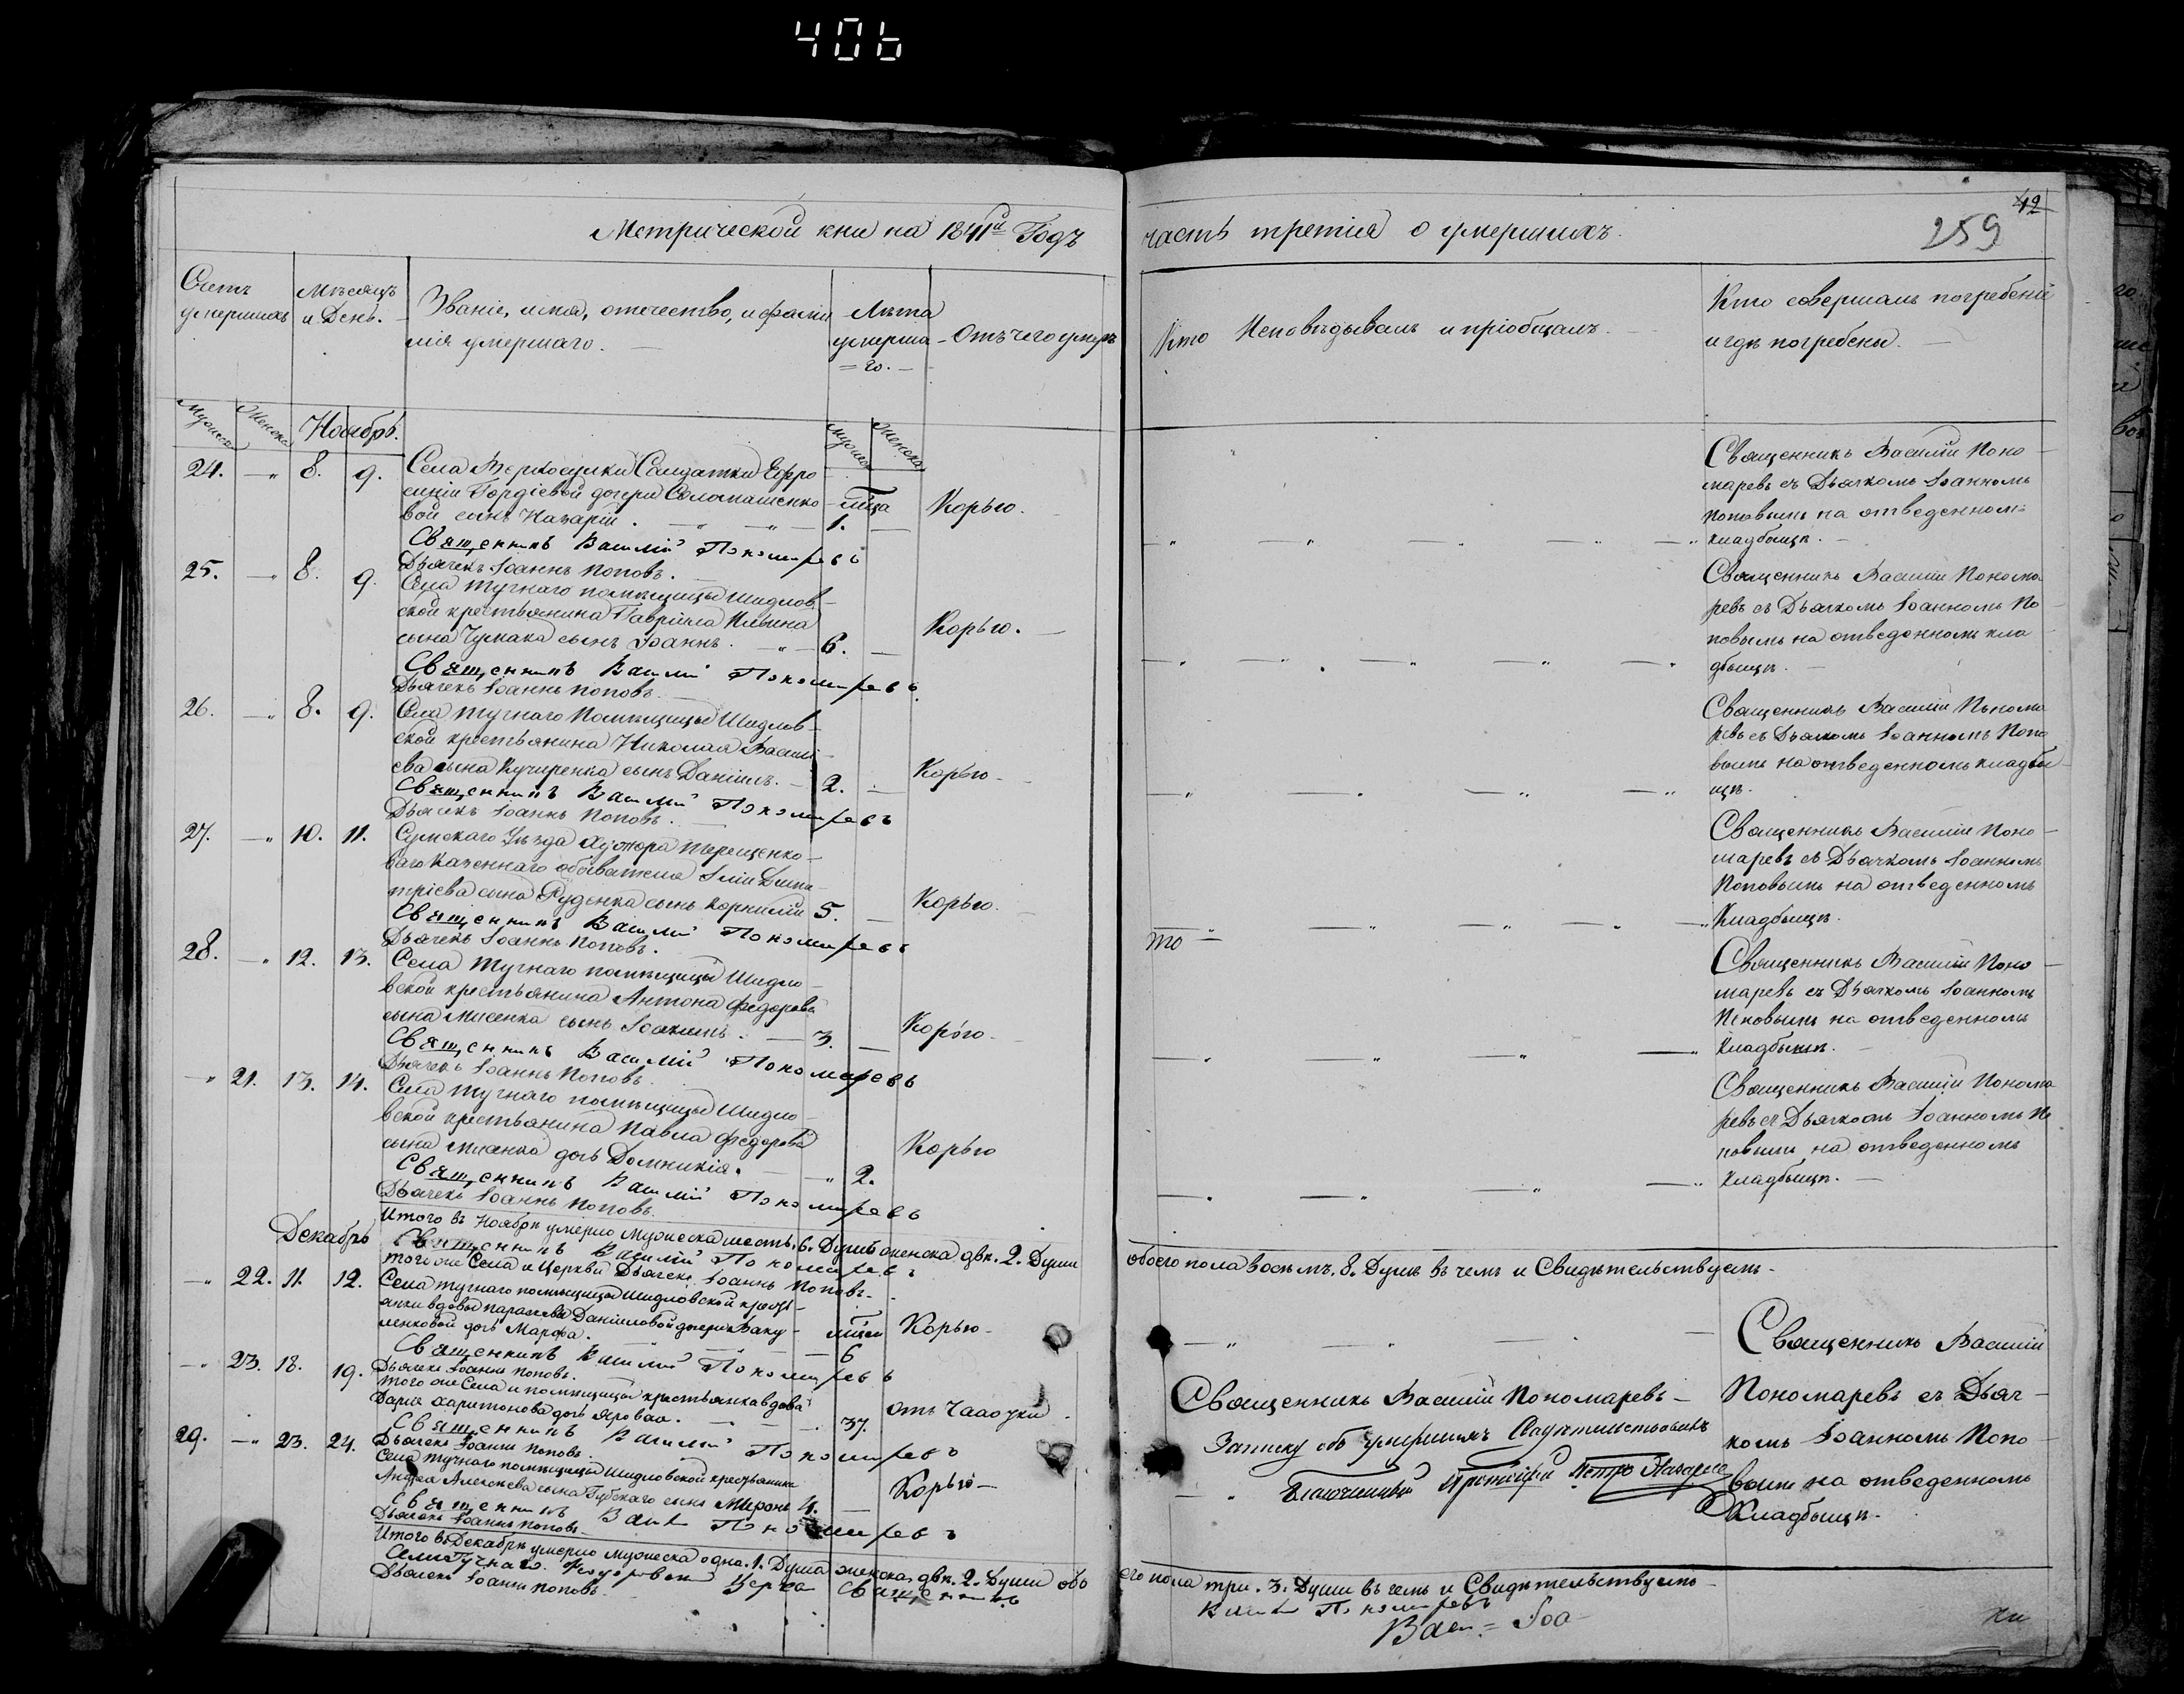 406
Метрической кни на 1841й Годъ
часть третія о умершихъ.
42
259
Счетъ умершихъ
Мѣсяцъ и День.
Званіе, имя, отечество, и фами
лія умершаго.
Лѣта
умерша
=го.
Отъ чего умеръ
Кто Исповѣдывалъ и пріобщалъ.
Кто совершалъ погребеніе
и гдѣ погребены.
Мужеска Женска
Ноябрь.
Мужеска Женска
24. — 8. 9.
Села Верхосулки Салдатки Ефро
синіи Гордіевой дочери
вой сынъ Назарій.
1.
Корью.
Священникъ Василій Пономаревъ
Дьячекъ Іоаннъ Поповъ.
Священникъ Василій Поно
маревъ съ Дьячкомъ Іоанномъ
Поповымъ на отведенномъ
кладбищѣ.
25. — 8. 9.
Села Тучнаго помѣщицы Шидлов
ской крестьянина Гавріила Ильина
сына Чумака сынъ Іоаннъ. 6.
Корью.
Священникъ Василій Пономаревъ
Дьячекъ Іоаннъ Поповъ.
Священникъ Василій Понома
ревъ съ Дьячкомъ Іоанномъ По
повымъ на отведенномъ кла
дбищѣ.
26. — 8. 9.
Села Тучнаго Помѣщицы Шидлов
ской крестьянина Николая Васил
ева сына Кучеренка сынъ Даніилъ. 2.
Корью
Священникъ Василій Пономаревъ
Дьячекъ Іоаннъ Поповъ.
Священникъ Василій Понома
ревъ съ Дьячкомъ Іоанномъ Попо
вымъ на отведенномъ кладби
щѣ.
27. — 10. 11.
Сумскаго Уѣзда Хутора Терещенко
ваго Казеннаго обывателя Іліи Дими
тріева сына Руденка сынъ Корнилій 5.
Корью.
Священникъ Василій Пономаревъ
Дьячекъ Іоаннъ Поповъ.
то
Священникъ Василій Поно
маревъ съ Дьячкомъ Іоанномъ
Поповымъ на отведенномъ
Кладбищѣ.
28. — 12. 13.
Села Тучнаго помѣщицы Шидло
вской крестьянина Антона Федорова
сына Мисенка сынъ Іоакимъ. 3.
Корью
Священникъ Василій Пономаревъ
Дьячекъ Іоаннъ Поповъ.
Священникъ Василій Поно
маревъ съ Дьячкомъ Іоанномъ
Поповымъ на отведенномъ
Кладбищѣ.
— 21. 13. 14.
Села Тучнаго помѣщицы Шидло
вской крестьянина Павла Федорова
сына Мисенка дочь Домникія. 2.
Корью
Священникъ Василій Пономаревъ
Дьячекъ Іоаннъ Поповъ.
Священникъ Василій Понома
ревъ съ Дьячкомъ Іоанномъ По
повымъ на отведенномъ
Кладбищѣ.
Итого въ Ноябрѣ умерло Мужеска шесть. 6. Душъ женска двѣ. 2. Души
обоего пола восьмъ. 8. Душъ въ чемъ и Свидѣтельствуемъ
Священникъ Василій Пономаревъ
Декабрь
того же Села и Церкви Дьячекъ Іоаннъ Поповъ.
— 22. 11. 12.
Села Тучнаго помѣщицы Шидловской кресть
янки вдовы Параскевы Данииловой дочери Баку
ленковой дочь Марфа. 6
Корью
Священникъ Василій Пономаревъ
Дьячекъ Іоаннъ Поповъ.
Священникъ Василій
Пономаревъ съ Дьяч
комъ Іоанномъ Попо
вымъ на отведенномъ
Кладбищѣ.
— 23. 18. 19.
того же Села и помѣщицы крестьянка вдова
Дарія Харитонова дочь Яровая. 37.
отъ Чахотки
Священникъ Василій Пономаревъ
Священникъ Василій Пономаревъ
Дьячекъ Іоаннъ Поповъ.
29. — 23. 24.
Села Тучнаго помѣщицы Шидловской крестьянина
Андрея Алексѣева сына Губскаго сынъ Миронъ 4.
Корью
Священникъ Пономаревъ
Дьячекъ Іоаннъ Поповъ
Записку объ умершихъ Свидѣтельствовалъ
Благочинный Протоіерей Петръ
Итого въ Декабрѣ умерло мужеска одна. 1. Душа женска двѣ. 2. Души обо
его пола три. 3. Души въ чемъ и Свидѣтельствуемъ
Села Тучнаго Священникъ
Пономаревъ
Дьячекъ Іоаннъ Поповъ.